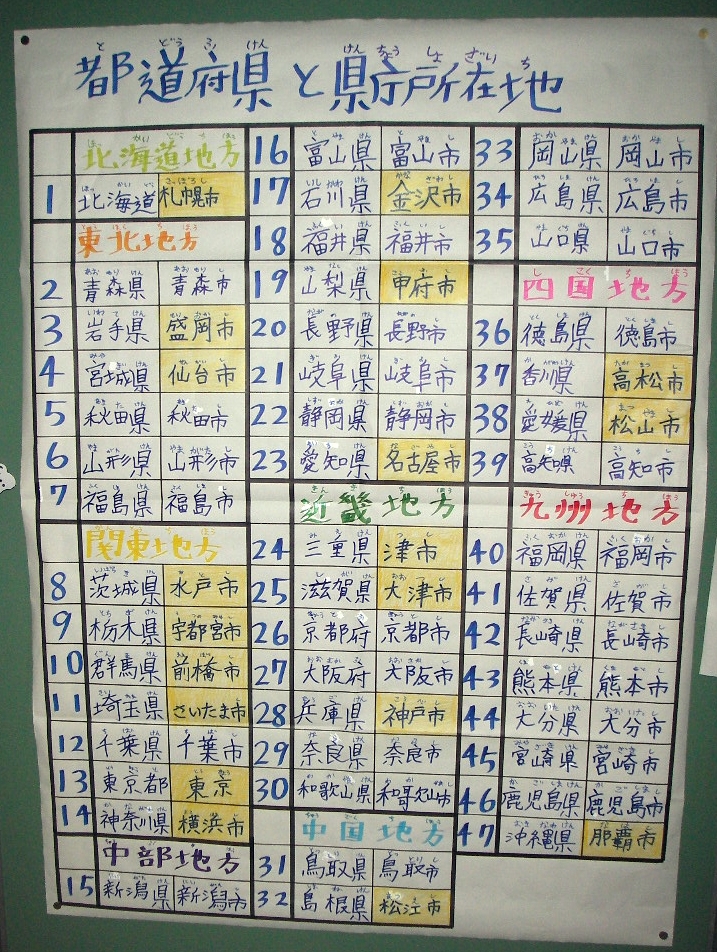 都道府県と県庁所在地
北海道地方
1 北海道 札幌市
東北地方
2 青森県 青森市
3 岩手県 盛岡市
4 宮城県 仙台市
5 秋田県 秋田市
6 山形県 山形市
7 福島県 福島市
関東地方
8 茨城県 水戸市
9 栃木県 宇都宮市
10 群馬県 前橋市
11 埼玉県 さいたま市
12 千葉県 千葉市
13 東京都 東京
14 神奈川県 横浜市
中部地方
15 新潟県 新潟市
16 富山県 富山市
17 石川県 金沢市
18 福井県 福井市
19 山梨県 甲府市
20 長野県 長野市
21 岐阜県 岐阜市
22 静岡県 静岡市
23 愛知県 名古屋市
近畿地方
24 三重県 津市
25 滋賀県 大津市
26 京都府 京都市
27 大阪府 大阪市
28 兵庫県 神戸市
29 奈良県 奈良市
30 和歌山県 和歌山市
中国地方
31 鳥取県 鳥取市
32 島根県 松江市
33 岡山県 岡山市
34 広島県 広島市
35 山口県 山口市
四国地方
36 徳島県 徳島市
37 香川県 高松市
38 愛媛県 松山市
39 高知県 高知市
九州地方
40 福岡県 福岡市
41 佐賀県 佐賀市
42 長崎県 長崎市
43 熊本県 熊本市
44 大分県 大分市
45 宮崎県 宮崎市
46 鹿児島県 鹿児島市
47 沖縄県 那覇市